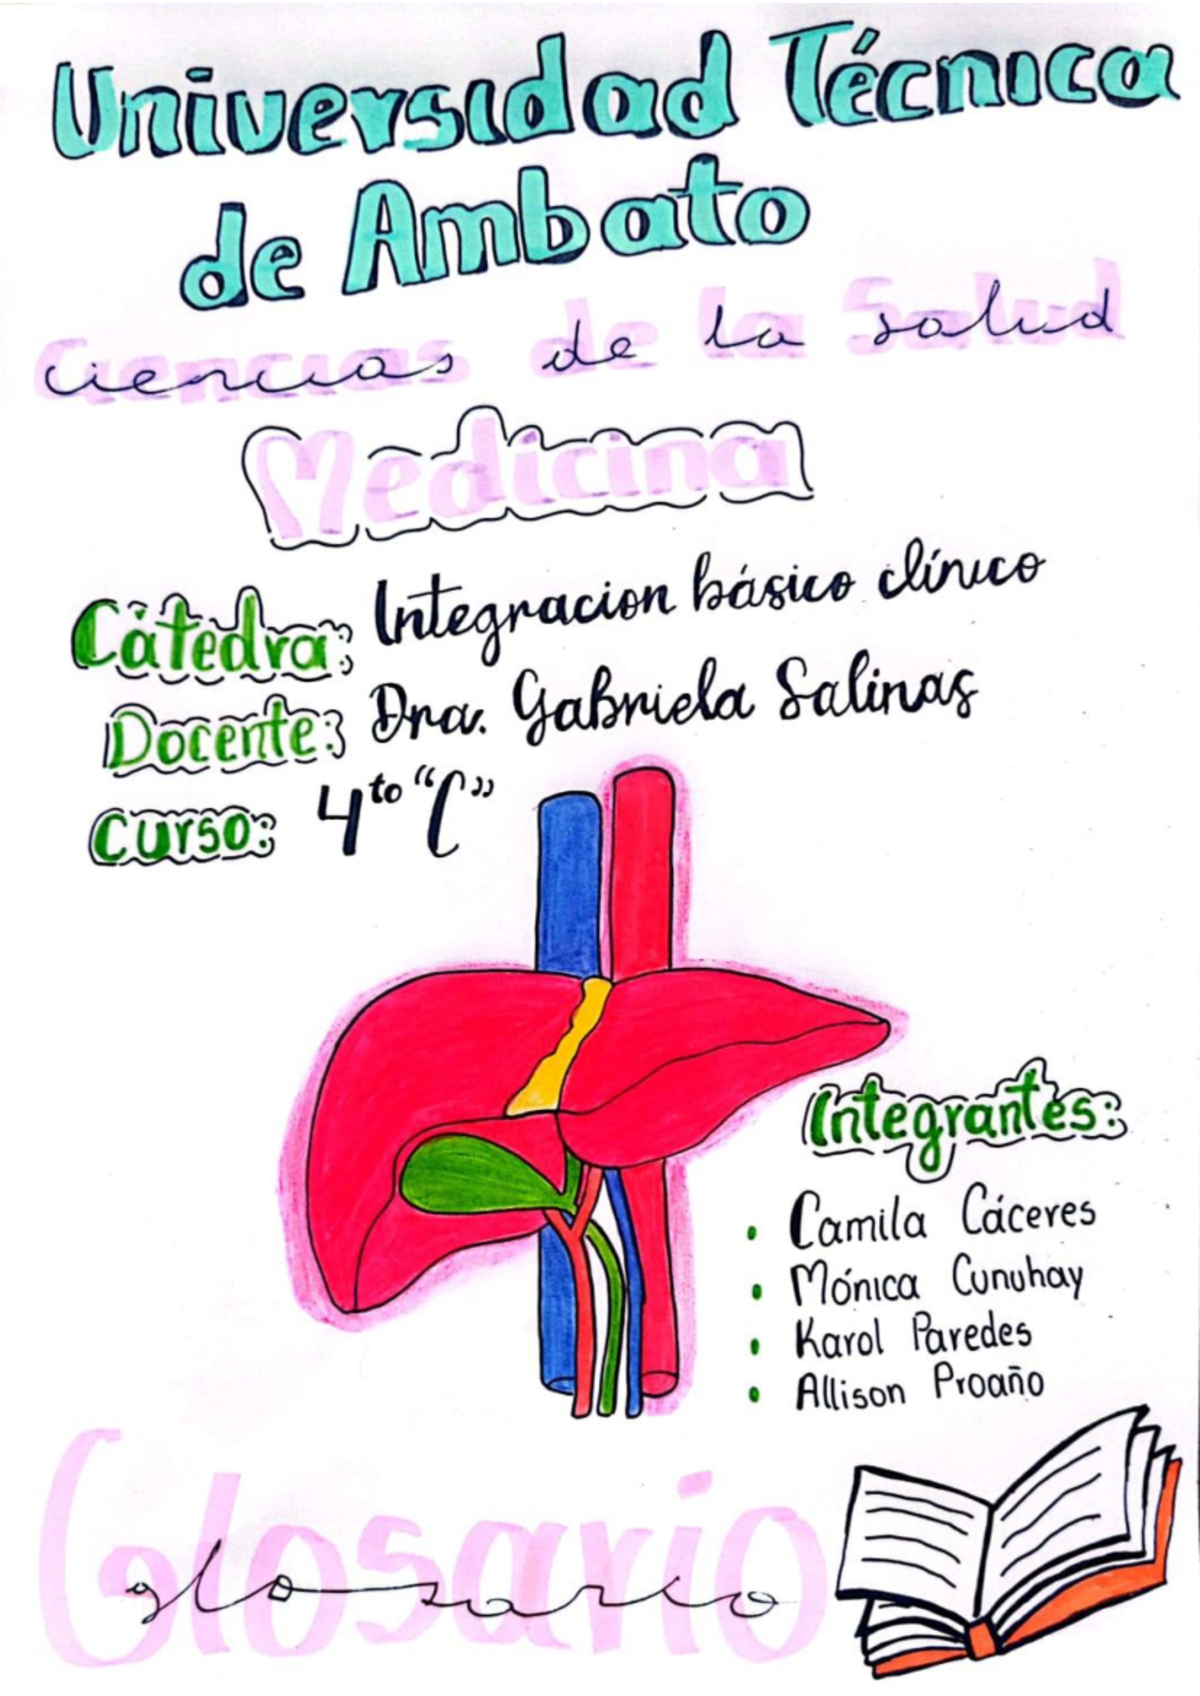 Universidad Técnica
de Ambato
Ciencias de la Salud
Medicina
Cátedra: Integracion básico clínico
Docente: Dra. Gabriela Salinas
Curso: 4to "C"
Integrantes:
• Camila Cáceres
• Mónica Cunuhay
• Karol Paredes
• Allison Proaño
Glosario
glosario